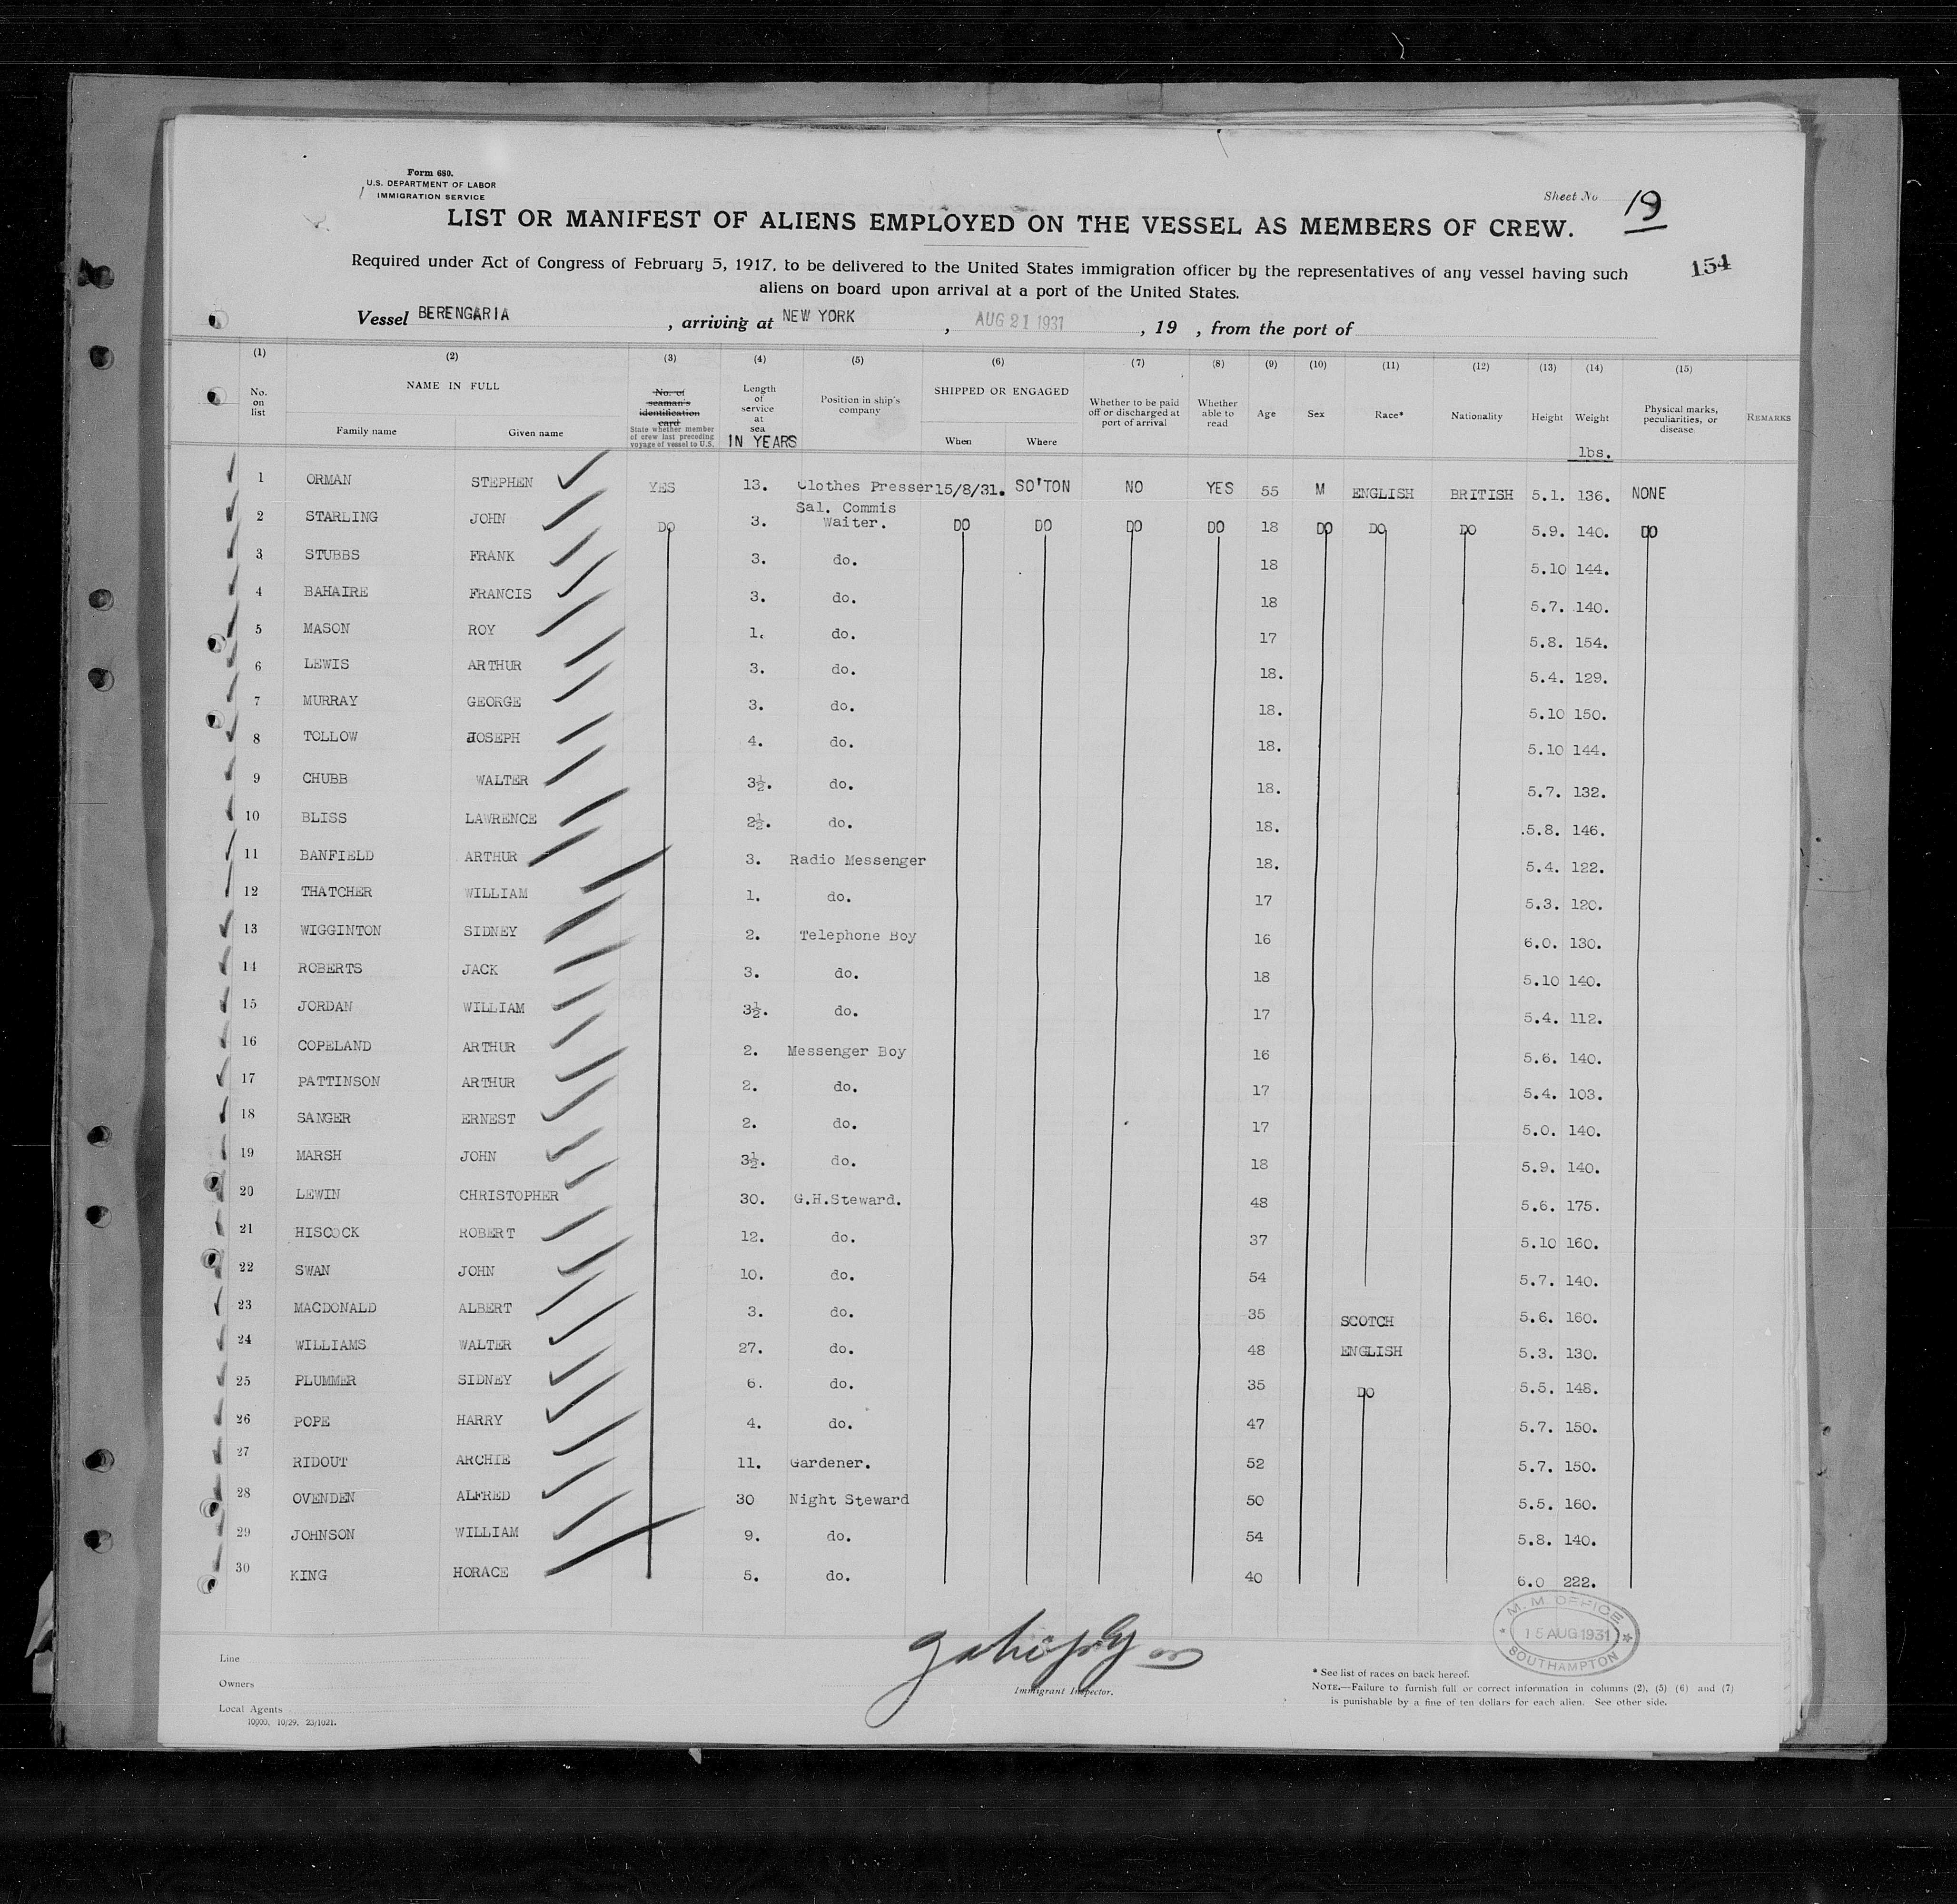 Form 680.
U.S. DEPARTMENT OF LABOR
IMMIGRATION SERVICE
Sheet No 19
LIST OR MANIFEST OF ALIENS EMPLOYED ON THE VESSEL AS MEMBERS OF CREW.
154
Required under Act of Congress of February 5, 1917, to be delivered to the United States immigration officer by the representatives of any vessel having such
aliens on board upon arrival at a port of the United States.
Vessel BERENGARIA , arriving at NEW YORK , AUG 21 1931 , 19 , from the port of
(1) (2) (3) (4) (5) (6) (7) (8) (9) (10) (11) (12) (13) (14) (15)
No. on list NAME IN FULL Family name Given name No. of seaman's identification card State whether member of crew last preceding voyage of vessel to U.S. Length of service at sea IN YEARS Position in ship's company SHIPPED OR ENGAGED When Where Whether to be paid off or discharged at port of arrival Whether able to read Age Sex Race* Nationality Height Weight lbs. Physical marks, peculiarities, or disease REMARKS
1 ORMAN STEPHEN YES 13. Clothes Presser 15/8/31. SO'TON NO YES 55 M ENGLISH BRITISH 5.1. 136. NONE
2 STARLING JOHN DO 3. Sal. Commis Waiter. DO DO DO DO 18 DO DO DO 5.9. 140. DO
3 STUBBS FRANK 3. do. 18 5.10 144.
4 BAHAIRE FRANCIS 3. do. 18 5.7. 140.
5 MASON ROY 1. do. 17 5.8. 154.
6 LEWIS ARTHUR 3. do. 18. 5.4. 129.
7 MURRAY GEORGE 3. do. 18. 5.10 150.
8 TOLLOW JOSEPH 4. do. 18. 5.10 144.
9 CHUBB WALTER 3½. do. 18. 5.7. 132.
10 BLISS LAWRENCE 2½. do. 18. .5.8. 146.
11 BANFIELD ARTHUR 3. Radio Messenger 18. 5.4. 122.
12 THATCHER WILLIAM 1. do. 17 5.3. 120.
13 WIGGINTON SIDNEY 2. Telephone Boy 16 6.0. 130.
14 ROBERTS JACK 3. do. 18 5.10 140.
15 JORDAN WILLIAM 3½. do. 17 5.4. 112.
16 COPELAND ARTHUR 2. Messenger Boy 16 5.6. 140.
17 PATTINSON ARTHUR 2. do. 17 5.4. 103.
18 SANGER ERNEST 2. do. 17 5.0. 140.
19 MARSH JOHN 3½. do. 18 5.9. 140.
20 LEWIN CHRISTOPHER 30. G.H.Steward. 48 5.6. 175.
21 HISCOCK ROBERT 12. do. 37 5.10 160.
22 SWAN JOHN 10. do. 54 5.7. 140.
23 MACDONALD ALBERT 3. do. 35 SCOTCH 5.6. 160.
24 WILLIAMS WALTER 27. do. 48 ENGLISH 5.3. 130.
25 PLUMMER SIDNEY 6. do. 35 DO 5.5. 148.
26 POPE HARRY 4. do. 47 5.7. 150.
27 RIDOUT ARCHIE 11. Gardener. 52 5.7. 150.
28 OVENDEN ALFRED 30 Night Steward 50 5.5. 160.
29 JOHNSON WILLIAM 9. do. 54 5.8. 140.
30 KING HORACE 5. do. 40 6.0 222.
M. M. OFFICE
15 AUG 1931
SOUTHAMPTON
Line
Owners
Local Agents
10000, 10/29, 23/1021.
Immigrant Inspector.
* See list of races on back hereof.
NOTE.—Failure to furnish full or correct information in columns (2), (5) (6) and (7)
is punishable by a fine of ten dollars for each alien. See other side.